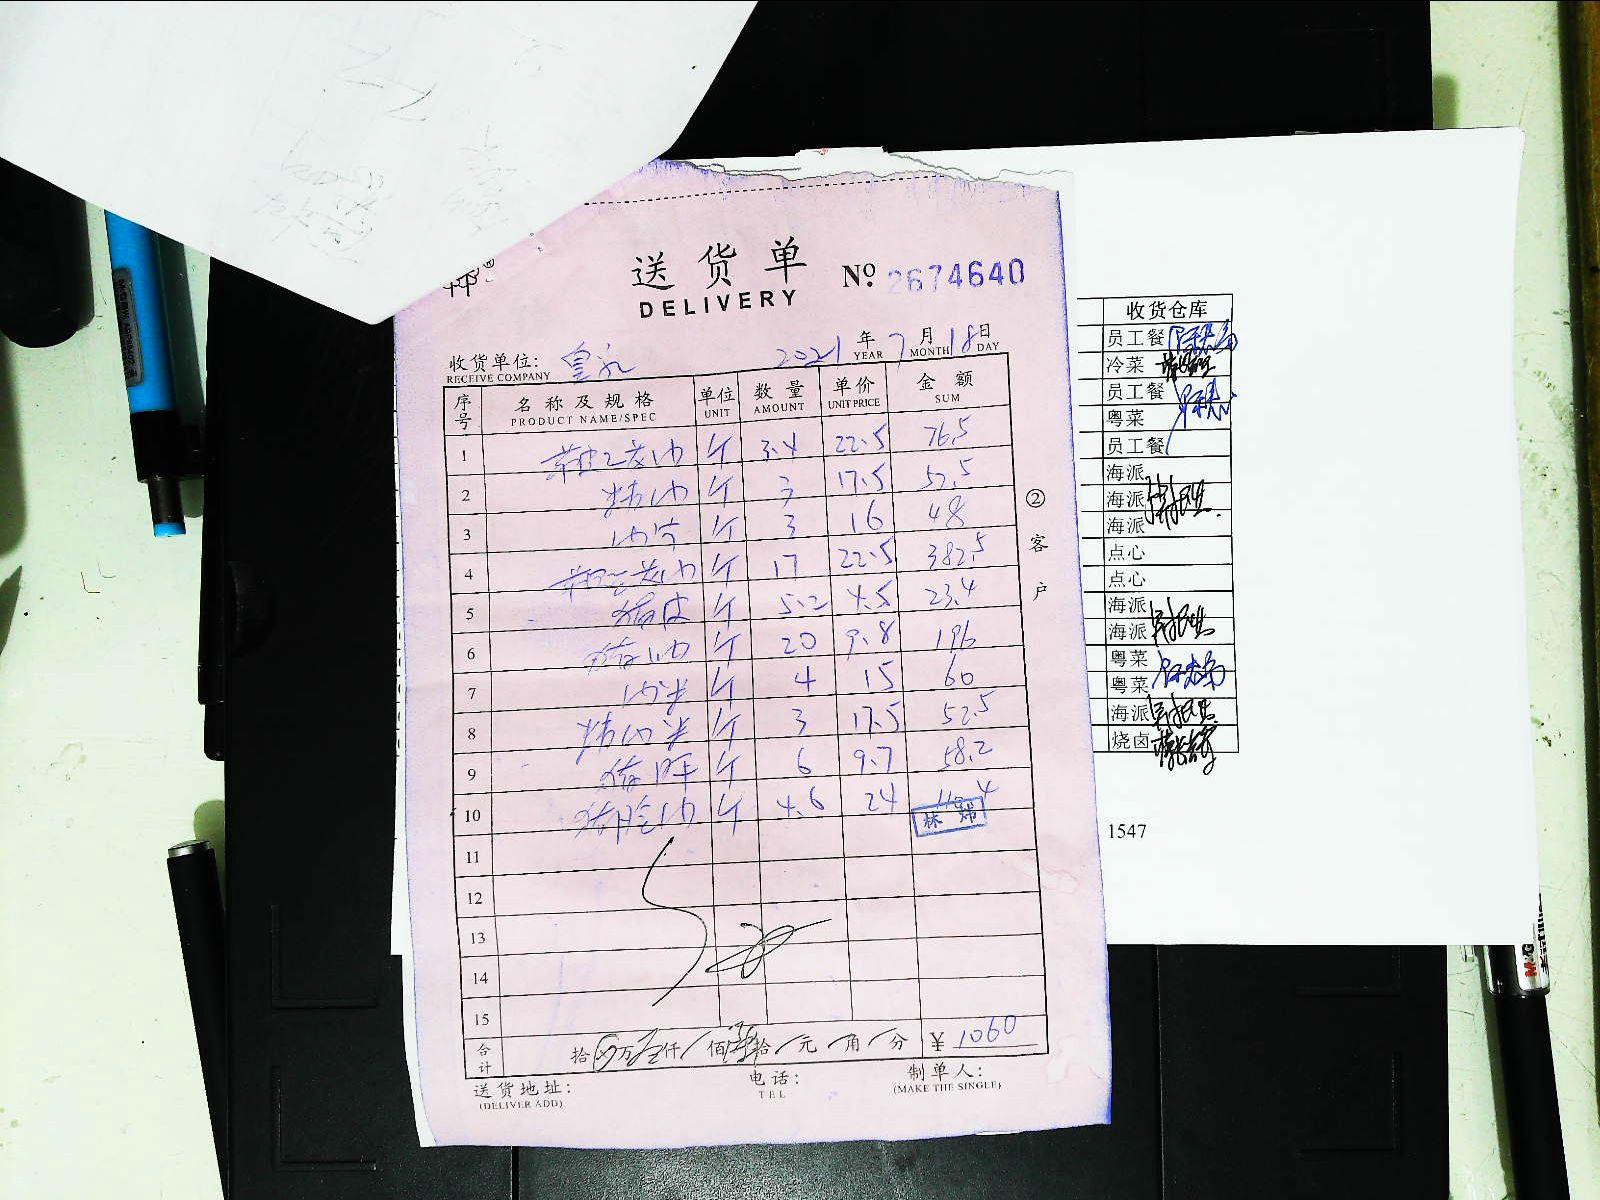 送货单
DELIVERY
No. 2674640
收货单位: 2021 年 7 月 18 日
RECEIVE COMPANY YEAR MONTH DAY
序号 名称及规格 单位 数量 单价 金额
PRODUCT NAME/SPEC UNIT AMOUNT UNIT PRICE SUM
1 斤 3.4 22.5 76.5
2 精肉 斤 3 17.5 52.5
3 肉片 斤 3 16 48
4 斤 17 22.5 382.5
5 猪皮 斤 5.2 4.5 23.4
6 猪肉 斤 20 9.8 196
7 肉米 斤 4 15 60
8 精肉米 斤 3 17.5 52.5
9 猪肝 斤 6 9.7 58.2
10 猪脸肉 斤 4.6 24 110.4
林炜
11
12
13
14
15
合计 拾 万 仟 佰 拾 元 角 分 ¥ 1060
送货地址: 电话: 制单人:
(DELIVER ADD) TEL (MAKE THE SINGLE)
②客户
收货仓库
员工餐
冷菜
员工餐
粤菜
员工餐
海派
海派
海派
点心
点心
海派
海派
粤菜
粤菜
海派
烧卤
1547